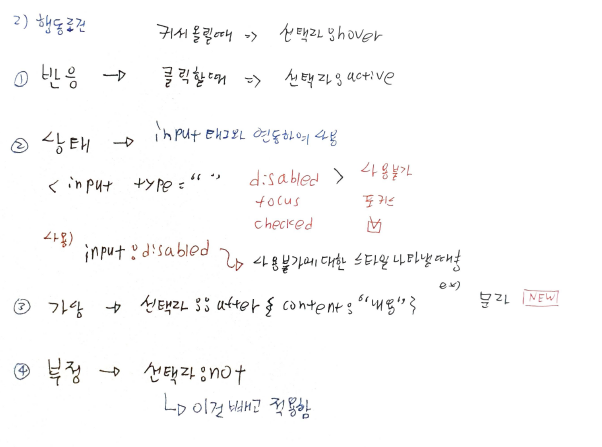 2) 행동조건
커서올릴때 => 선택자:hover
① 반응 → 클릭할때 => 선택자:active
② 상태 → input 태그와 연동하여 사용
< input type = " " disabled > 사용불가
focus 포커스
checked ☑
사용) input:disabled ↳ 사용불가에 대한 스타일 나타낼때
③ 가상 → 선택자::after { content:"내용" } ex) 글자 NEW
④ 부정 → 선택자:not
↳ 이건 빼고 적용함